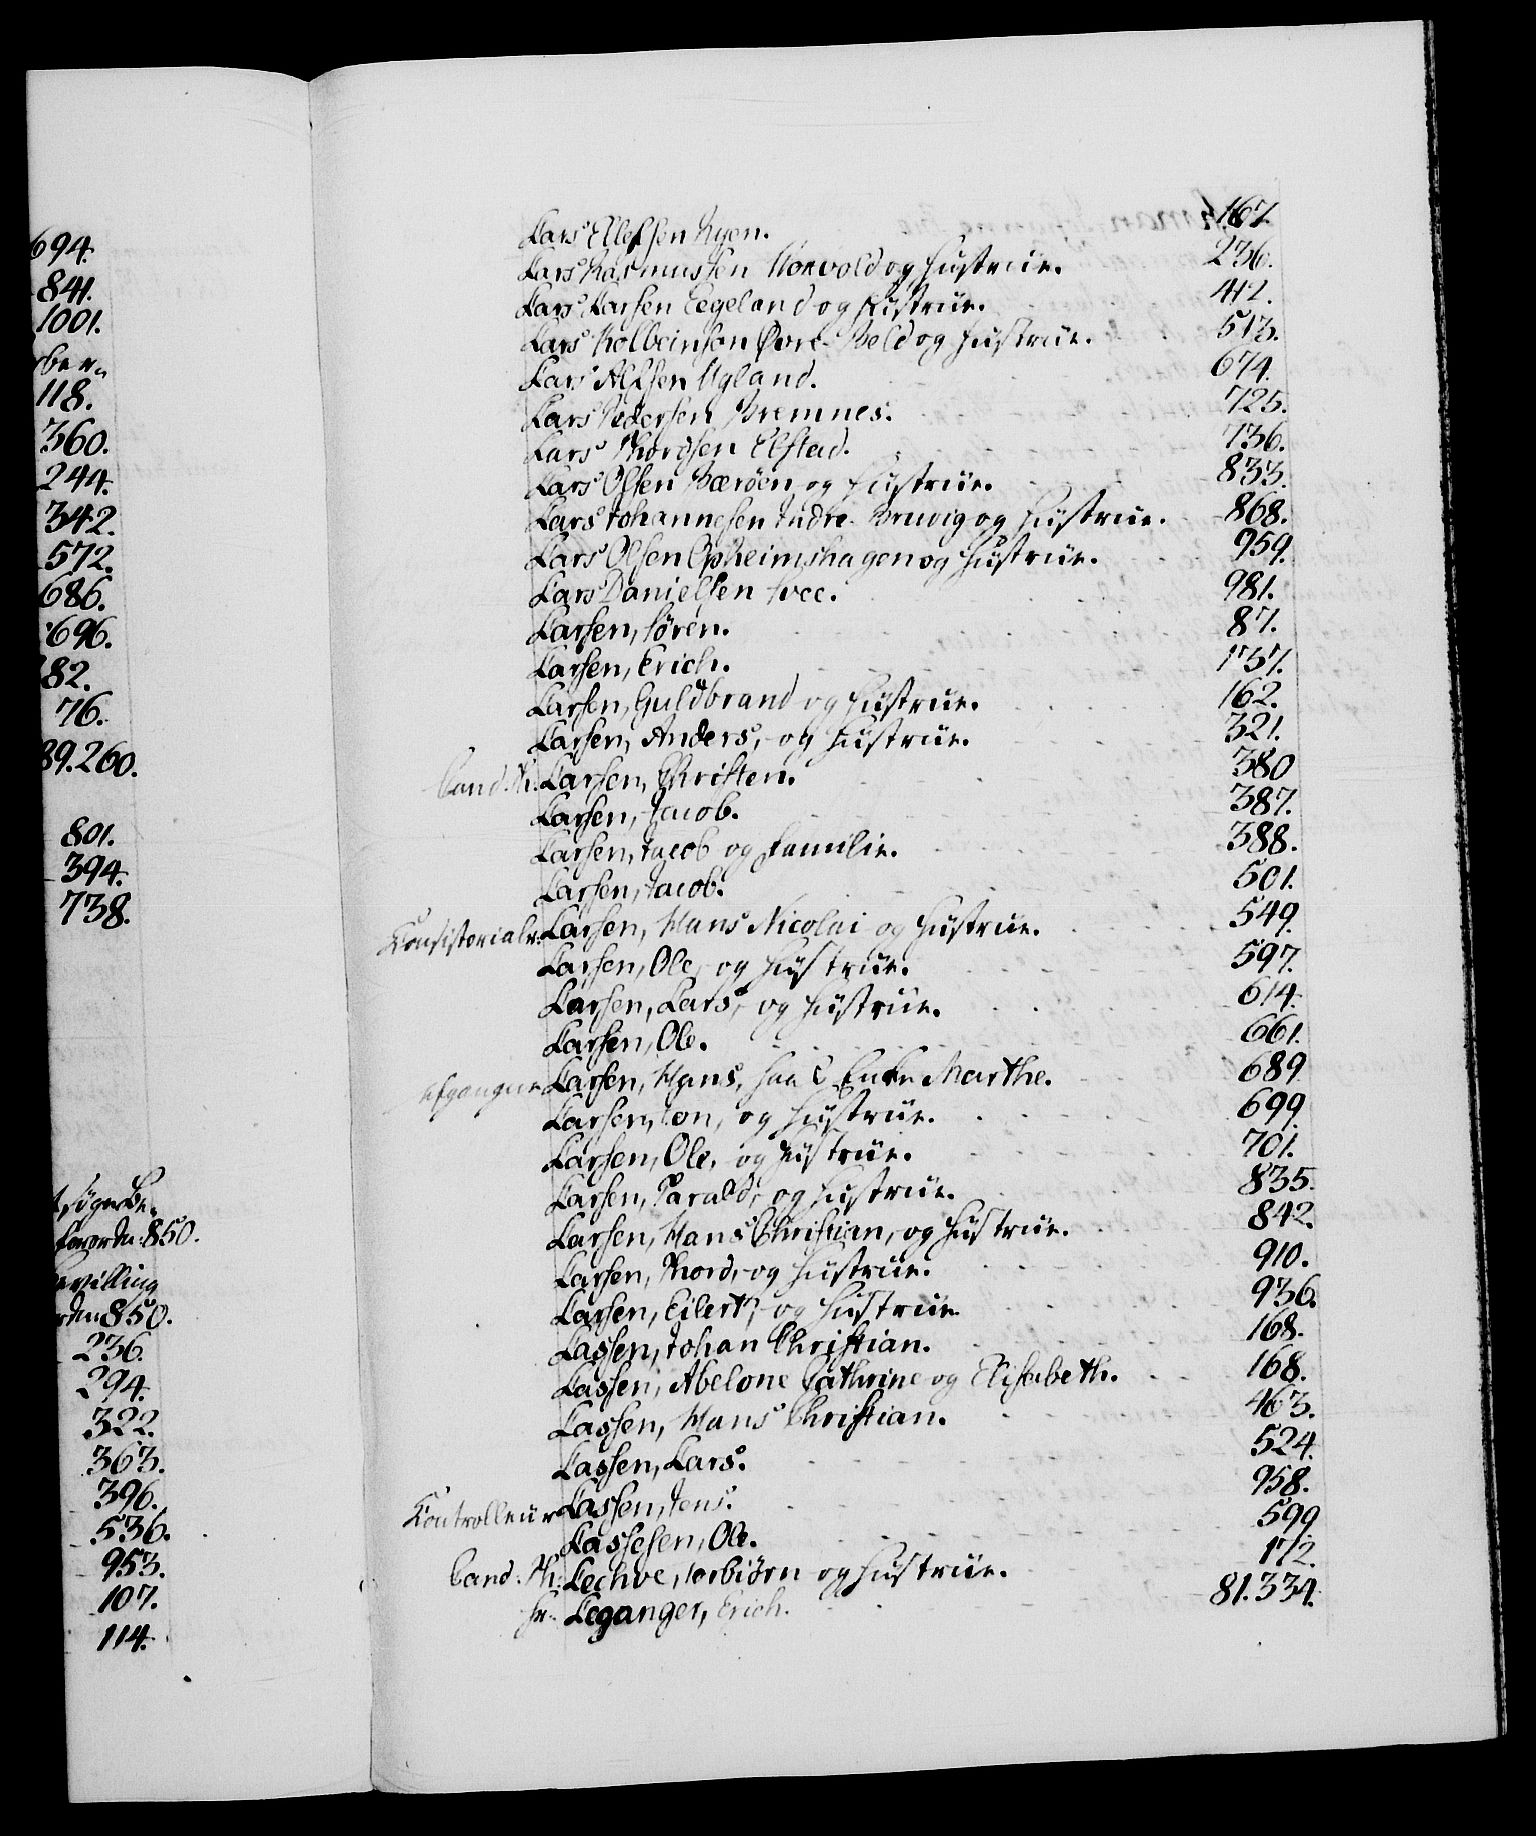 694.
841.
1001.
118.
360.
244.
342.
572.
686.
696.
82.
76.
89.260.
801.
394.
738.
850.
bevilling
850.
236.
294.
322.
363.
396.
536.
953.
107.
114.
Lars Ellefsen Ryen. 167.
Lars Rasmussen Norvold og Hustrue. 236.
Lars Larsen Eegeland og Hustrue. 412.
Lars Kolbeinsen Øvre-Veld og Hustrue. 513.
Lars Alfsen Ugland. 674.
Lars Pedersen Bremnes. 725.
Lars Thordsen Elstad. 736.
Lars Olsen Værøen og Hustrue. 833.
Lars Johannesen Indre-Bruvig og Hustrue. 868.
Lars Olsen Opheimshagen og Hustrue. 959.
Lars Danielsen Svee. 981.
Larsen, Søren. 87.
Larsen, Erich. 137.
Larsen, Guldbrand og Hustrue. 162.
Larsen, Anders, og Hustrue. 321.
Cand. Th. Larsen, Christen. 380
Larsen, Jacob. 387.
Larsen, Jacob og Familie. 388.
Larsen, Jacob. 501.
Konsistorialr. Larsen, Hans Nicolai og Hustrue. 549.
Larsen, Ole, og Hustrue. 597.
Larsen, Lars, og Hustrue. 614.
Larsen, Ole. 661.
afgangne Larsen, Hans, Enke Marthe. 689
Larsen, Jon, og Hustrue. 699.
Larsen, Ole, og Hustrue. 701.
Larsen, Harald, og Hustrue. 835.
Larsen, Hans Christian, og Hustrue. 842.
Larsen, Thord, og Hustrue. 910.
Larsen, Eilert, og Hustrue 936.
Lassen, Johan Christian. 168.
Lassen, Abelone Cathrine og Elisabeth. 168.
Lassen, Hans Christian. 463.
Lassen, Lars. 524.
Kontrolleur Lassen, Jens. 958.
Lassesen, Ole. 599
Cand. Th: Lechve, Torbiørn og Hustrue. 172.
Hr. Leganger, Erich. 81.334.